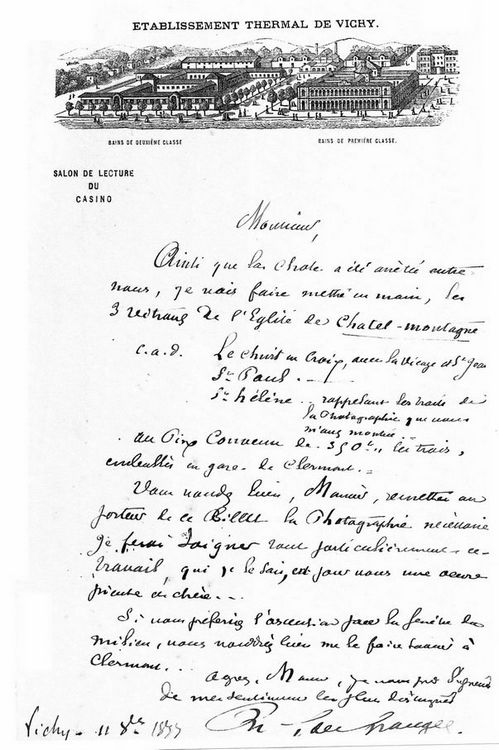 ETABLISSEMENT THERMAL DE VICHY.
BAINS DE DEUXIÈME CLASSE
BAINS DE PREMIÈRE CLASSE.
SALON DE LECTURE
DU
CASINO
Monsieur,
Ainsi que la chose a été arrêtée entre
nous, je vais faire mettre en main, les
3 vitraux de l'Eglise de Chatel-montagne
c.a.d. Le Christ en Croix, avec la Vierge et St Jean
St Paul.
Ste hélène rappelant les traits de
la Photographie que vous
m'avez montrée
au Prix Convenu de 350 f, les trois,
emballés en gare de Clermont.
Vous voudrez bien, Monsieur, remettre au
porteur de ce Billet la Photographie nécessaire
je ferai soigner tout particulièrement ce
travail, qui je le sais, est pour vous une oeuvre
pieuse et chère...
Si vous préferiez l'ascension pour la fenêtre du
milieu, vous voudrez bien me le faire savoir à
Clermont...
agréez, Monsieur, je vous prie
de mes sentiments les plus distingués
Vichy - 11